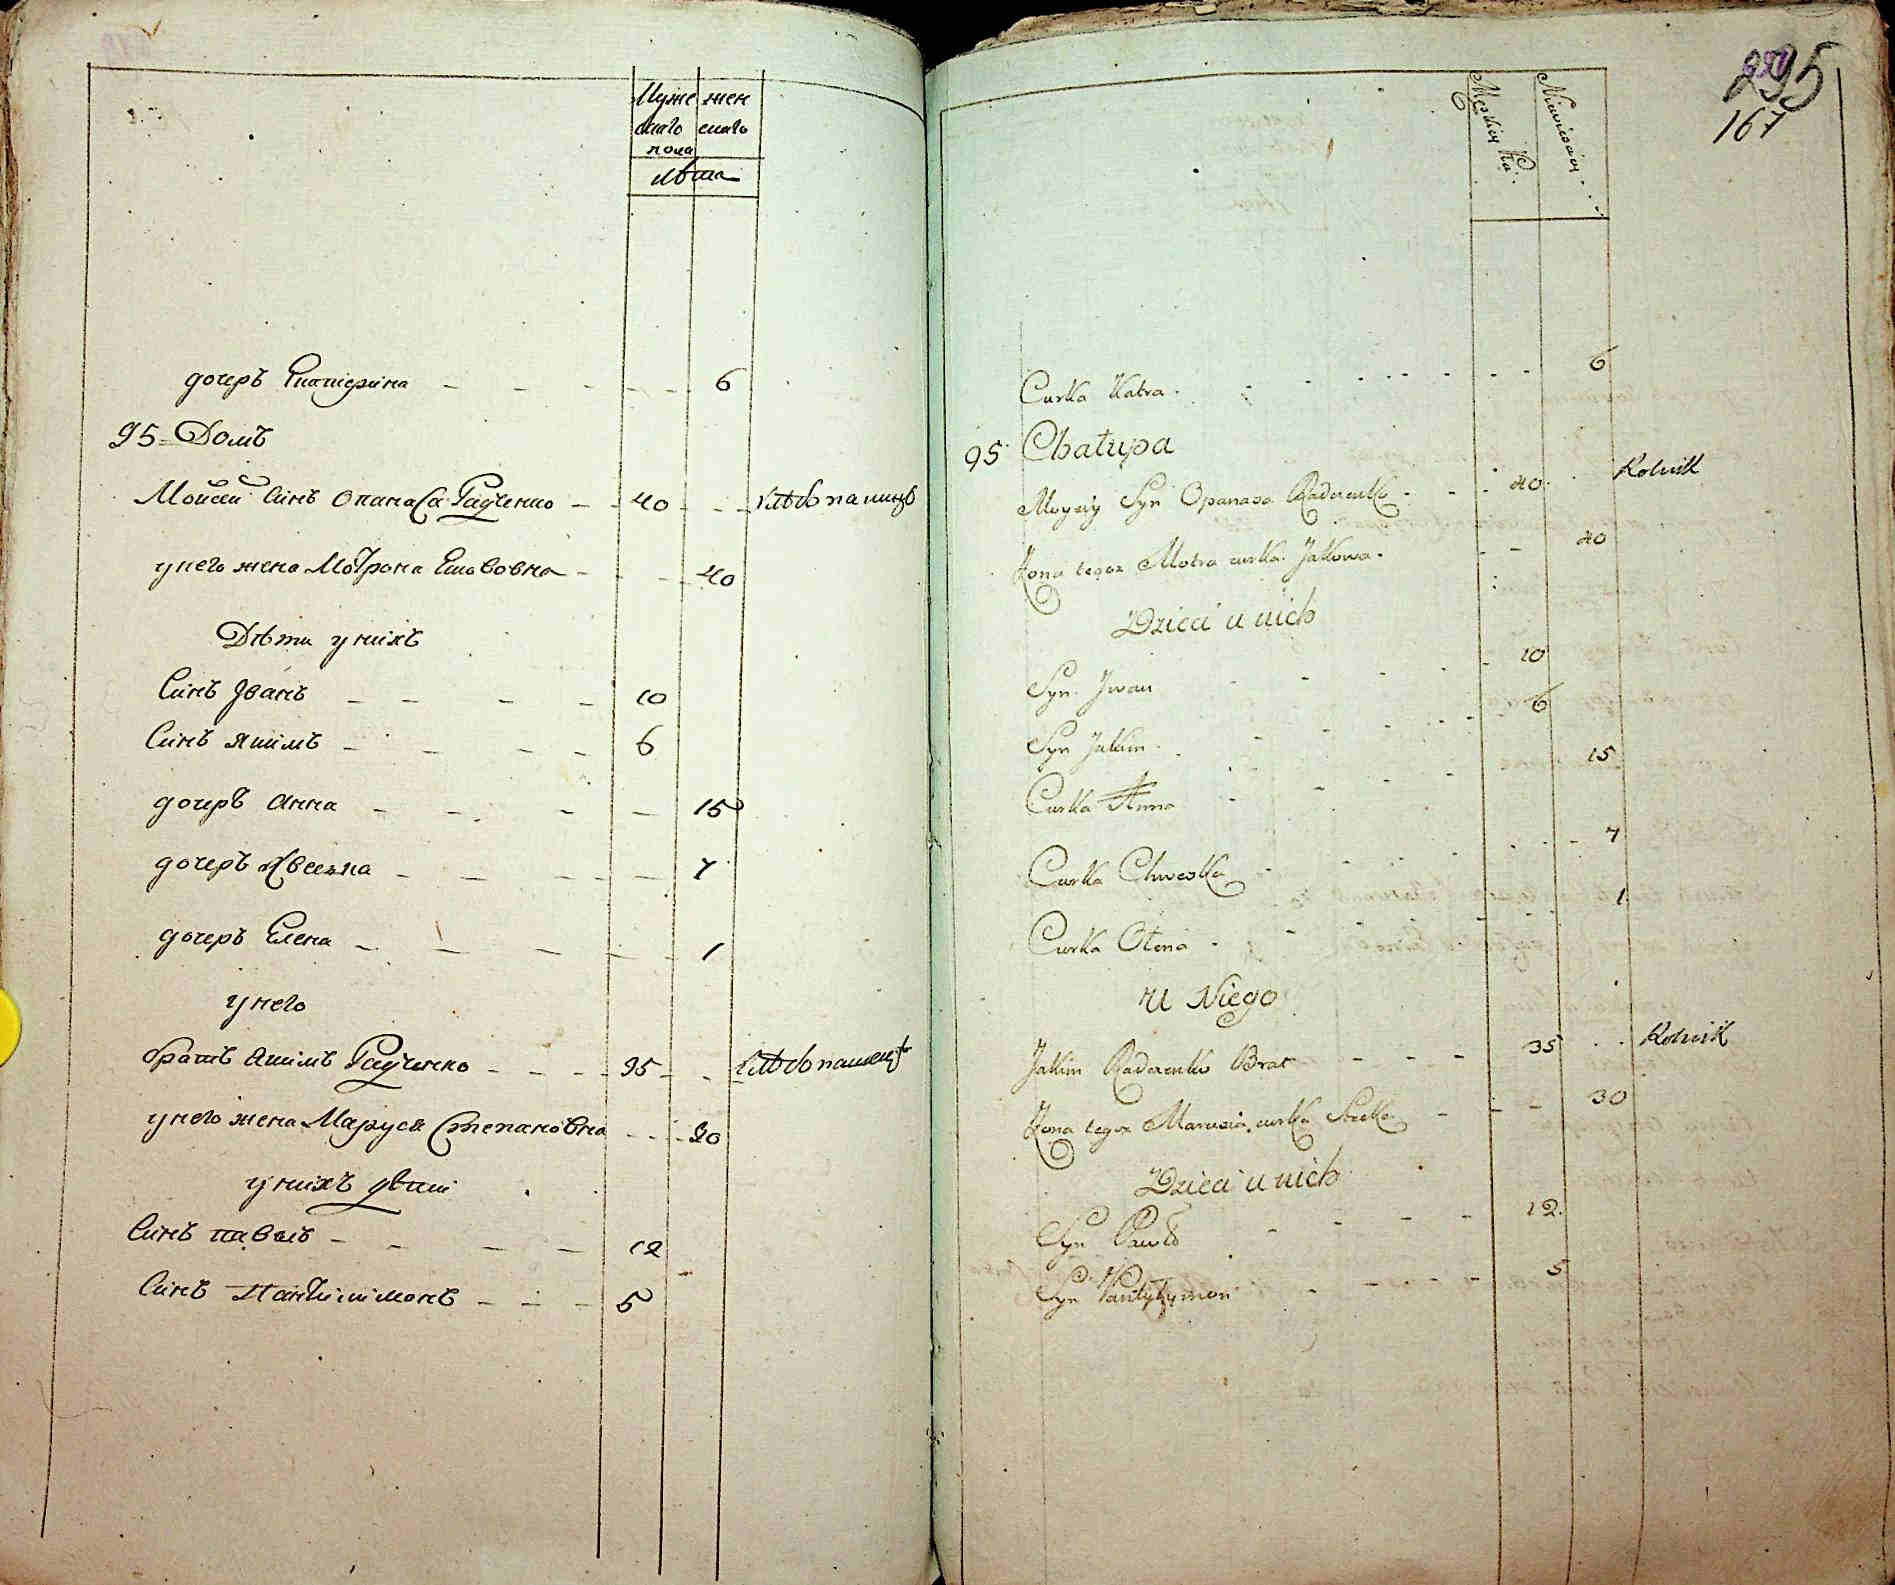 Муже жен
скаго скаго
пола
лѣта
дочеръ Екатерина 6
95 Домъ
Моисей Синъ Опанаса Радченко 40 хлѣбопашецъ
у него жена Мотрона Якововна 40
Дѣти у нихъ
Синъ Іванъ 10
Синъ Якимъ 6
дочеръ Анна 15
дочеръ 7
дочеръ Елена 1
у него
братъ Акимъ Радченко 35 хлѣбопашецъ
у него жена Маруся Степановна 30
у нихъ дѣти
Синъ павелъ 12
Синъ Пантилимонъ 5
295
167
Męskiey
Curka Katra 6
95 Chałupa
Moysiy Syn Opanasa Radczenko 40 Rolnik
Żona tegoż Motra curka Jakowa 40
Dzieci u nich
Syn Jwan 10
Syn Jakim 6
Curka Anna 15
Curka Chweska 7
Curka Ołena 1
U Niego
Jakim Radczenko Brat 35 Rolnik
Żona tegoż Marusia curka 30
Dzieci u nich
Syn Pawło 12
Syn Pantyłymon 5